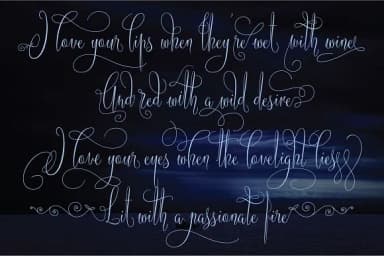 I love your lips when they're wet with wine
And red with a wild desire
I love your eyes when the lovelight lies
Lit with a passionate fire